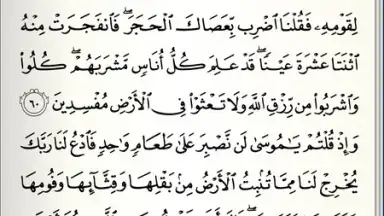 لِقَوْمِهِۦ فَقُلْنَا ٱضْرِب بِّعَصَاكَ ٱلْحَجَرَۖ فَٱنفَجَرَتْ مِنْهُ
ٱثْنَتَا عَشْرَةَ عَيْنٗاۖ قَدْ عَلِمَ كُلُّ أُنَاسٖ مَّشْرَبَهُمْۖ كُلُواْ
وَٱشْرَبُواْ مِن رِّزْقِ ٱللَّهِ وَلَا تَعْثَوْاْ فِي ٱلْأَرْضِ مُفْسِدِينَ ٦٠
وَإِذْ قُلْتُمْ يَٰمُوسَىٰ لَن نَّصْبِرَ عَلَىٰ طَعَامٖ وَٰحِدٖ فَٱدْعُ لَنَا رَبَّكَ
يُخْرِجْ لَنَا مِمَّا تُنۢبِتُ ٱلْأَرْضُ مِنۢ بَقْلِهَا وَقِثَّآئِهَا وَفُومِهَا